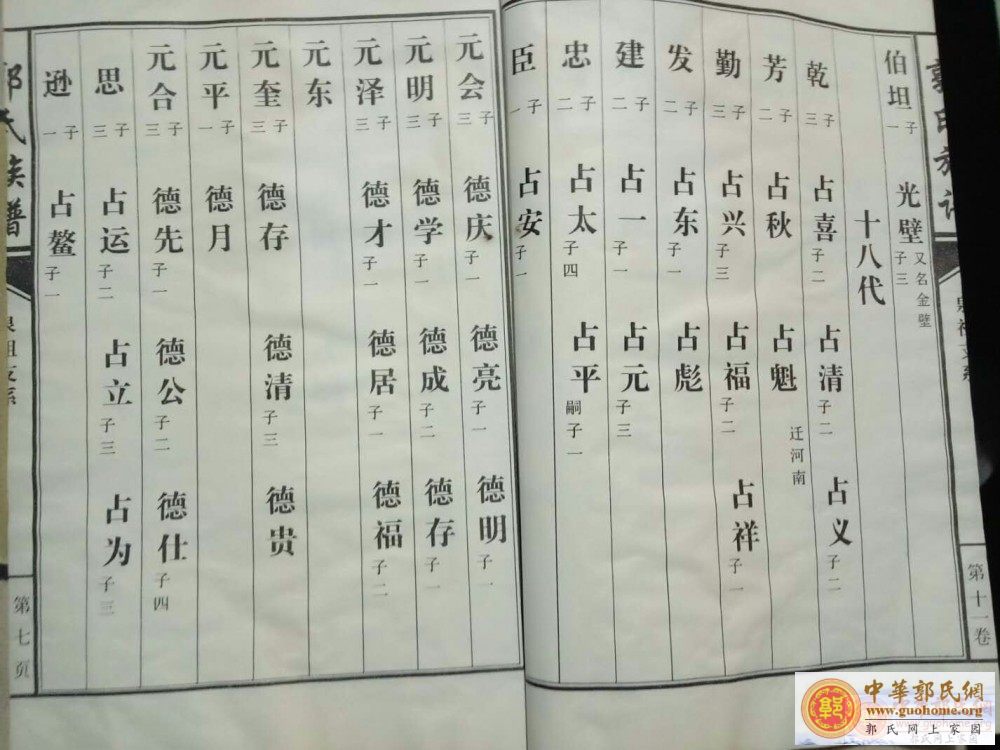 伯坦 子一 光壁 又名金壁 子三
十八代
乾 子三 占喜 子二 占清 子二 占义 子二
芳 子二 占秋 占魁 迁河南
勤 子三 占兴 子三 占福 子二 占祥 子一
发 子二 占东 子一 占彪 子一
建 子二 占一 子一 占元 子三
忠 子二 占太 子四 占平 嗣子一
臣 子一 占安 子一
第十一卷
元会 子三 德庆 子一 德亮 子一 德明 子一
元明 子三 德学 子一 德成 子二 德存 子一
元泽 子三 德才 子一 德居 子一 德福 子二
元东
元奎 子三 德存 德清 子三 德贵
元平 子一 德月
元合 子三 德先 子一 德公 子二 德仕 子四
思 子三 占运 子二 占立 子三 占为 子三
逊 子一 占鳌 子一
郭氏族谱
第七页
中華郭氏網
www.guohome.org
郭氏网上家园